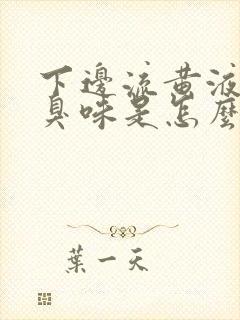 下邊流黃液
臭味是怎麼
葉一天